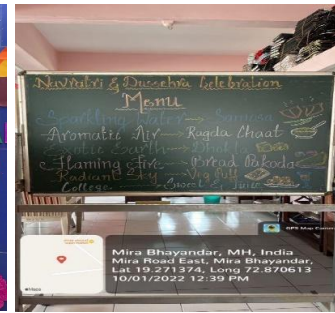 Navratri & Dussehra Celebration
Menu
Sparkling Water → Samosa
Aromatic Air → Ragda Chaat
Exotic Earth → Dhokla
Flaming Fire → Bread Pakoda
Radiant Sky → Veg Puff
College → Sweet & Juice
GPS Map Camera
Mira Bhayandar, MH, India
Mira Road East, Mira Bhayandar,
Lat 19.271374, Long 72.870613
10/01/2022 12:39 PM